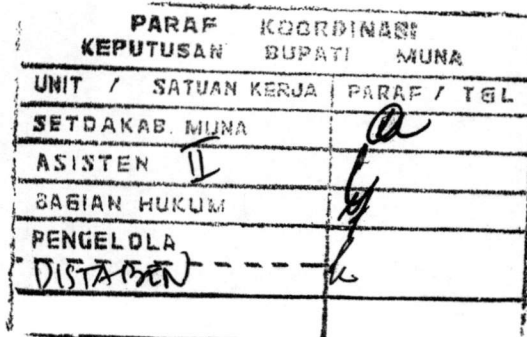 PARAF KOORDINASI
KEPUTUSAN BUPATI MUNA
UNIT / SATUAN KERJA PARAF / TGL
SETDAKAB. MUNA
ASISTEN II
BAGIAN HUKUM
PENGELOLA
DISTAMBEN